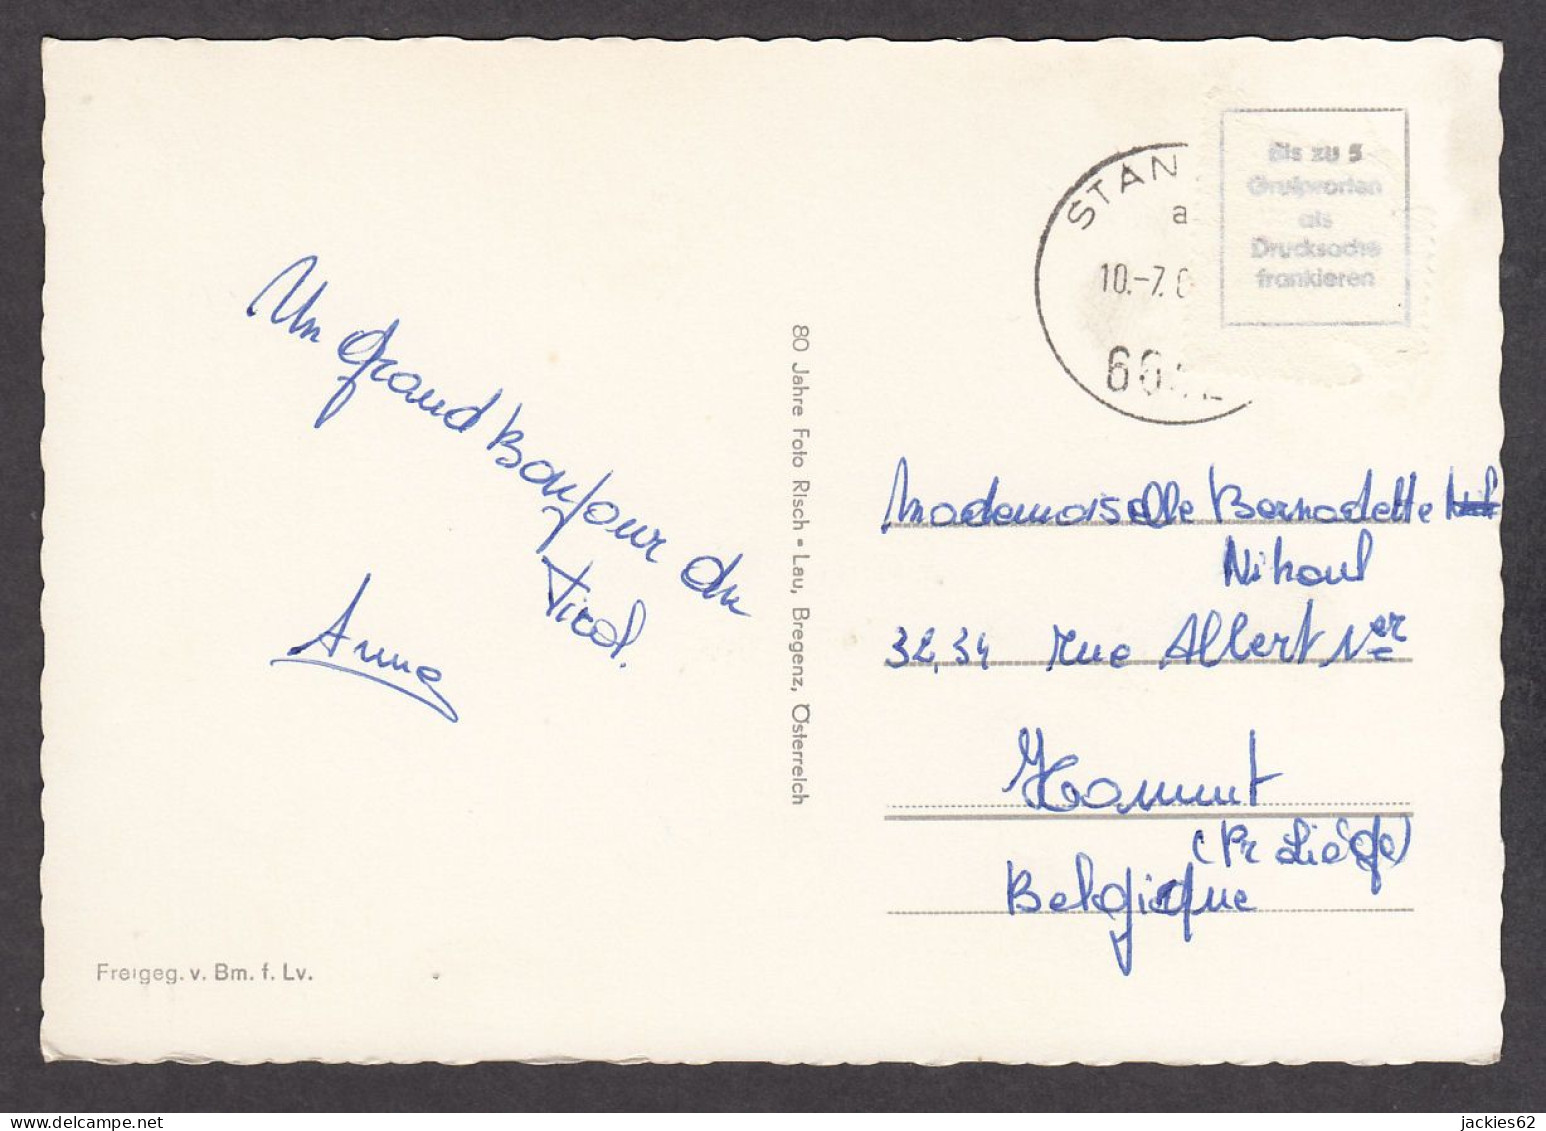 Un grand Bonjour du
Tirol.
Anne
80 Jahre Foto Risch-Lau, Bregenz, Österreich
Freigeg. v. Bm. f. Lv.
STAN
a
10.-7.6
Bis zu 5
Grußworten
als
Drucksache
frankieren
Mademoiselle Bernadette
Nihoul
32,34 rue Albert 1er
Hannut
(Pr Liége)
Belgique
jackies62